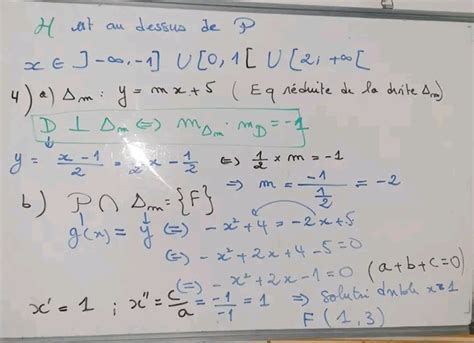 H est au dessus de P
x ∈ ]-∞, -1] ∪ [0, 1[ ∪ [2; +∞[
4) a) Δm : y = mx + 5 ( Eq réduite de la droite Δm)
D ⊥ Δm ⇔ mΔm · mD = -1
y = x-1/2 = 1/2 x - 1/2 ⇔ 1/2 × m = -1
⇒ m = -1/(1/2) = -2
b) P ∩ Δm = {F}
g(x) = y ⇔ -x² + 4 = -2x + 5
⇔ -x² + 2x + 4 - 5 = 0
⇔ -x² + 2x - 1 = 0 (a+b+c=0)
x' = 1 ; x'' = c/a = -1/-1 = 1 ⇒ solution double x=1
F(1,3)